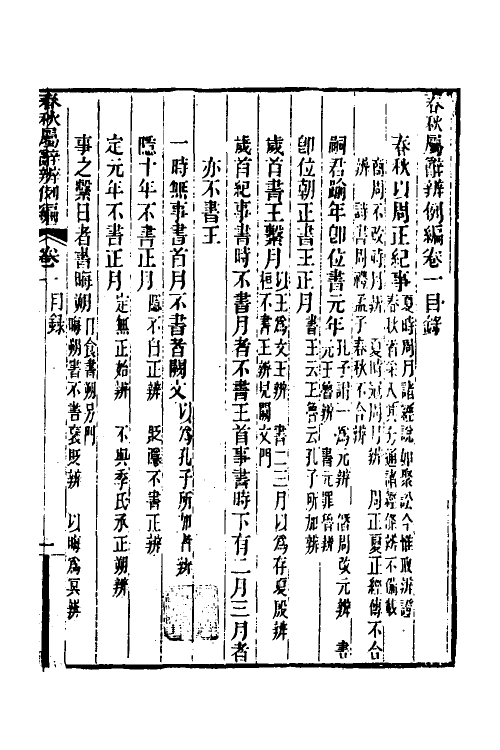 春秋屬辭辨例編卷一目錄
春秋以周正紀事 夏時周月諸經說如聚訟今惟取辨證
春秋者 其分通諸經 辨不備載
商周不改時月辨 夏時冠周月辨 周正夏正經傳不合
辨 詩書周禮孟子春秋不合辨
嗣君踰年卽位書元年 孔子訓一爲元辨 僭周改元辨 書
元王魯辨 書元罪魯辨
卽位朝正書王正月 書王云王魯云孔子所加辨
歲首書王繫月 以王爲文王辨 書二三月以爲存夏殷辨
桓不書王辨見闕文門
歲首紀事書時不書月者不書王首事書時下有二月三月者
亦不書王
一時無事書首月不書者闕文 以爲孔子所加者辨
隱十年不書正月 隱不自正辨 貶隱不書正辨
定元年不書正月 定無正始辨 不與季氏承正朔辨
事之繫日者書晦朔 日食書朔另門
晦朔書不書褒貶辨 以晦爲冥辨
春秋屬辭辨例編 卷一目錄 一